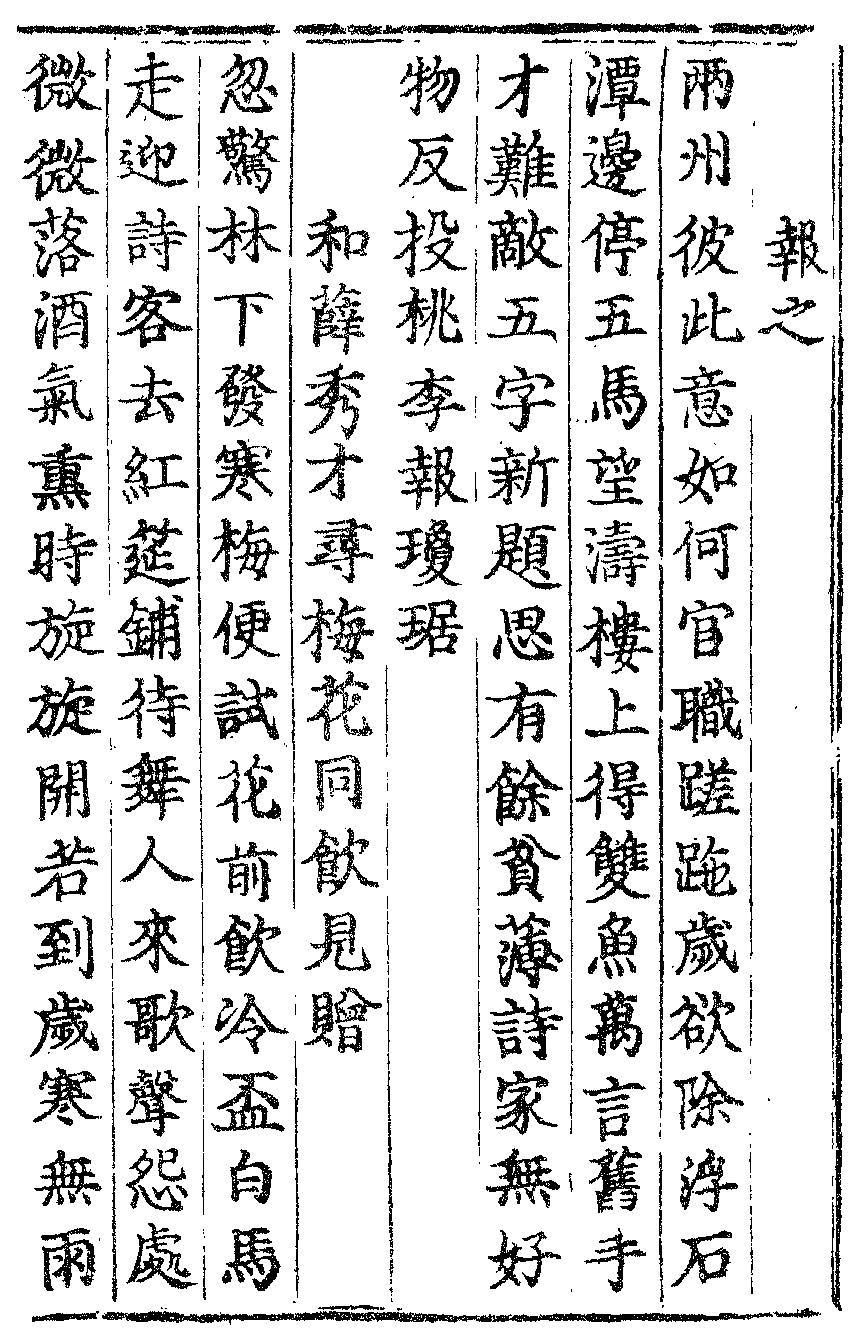 報之
兩州彼此意如何官職蹉跎歲欲除浮石
潭邊停五馬望濤樓上得雙魚萬言舊手
才難敵五字新題思有餘貧薄詩家無好
物反投桃李報瓊琚
和薛秀才尋梅花同飲見贈
忽驚林下發寒梅便試花前飲冷盃白馬
走迎詩客去紅筵鋪待舞人來歌聲怨處
微微落酒氣熏時旋旋開若到歲寒無雨